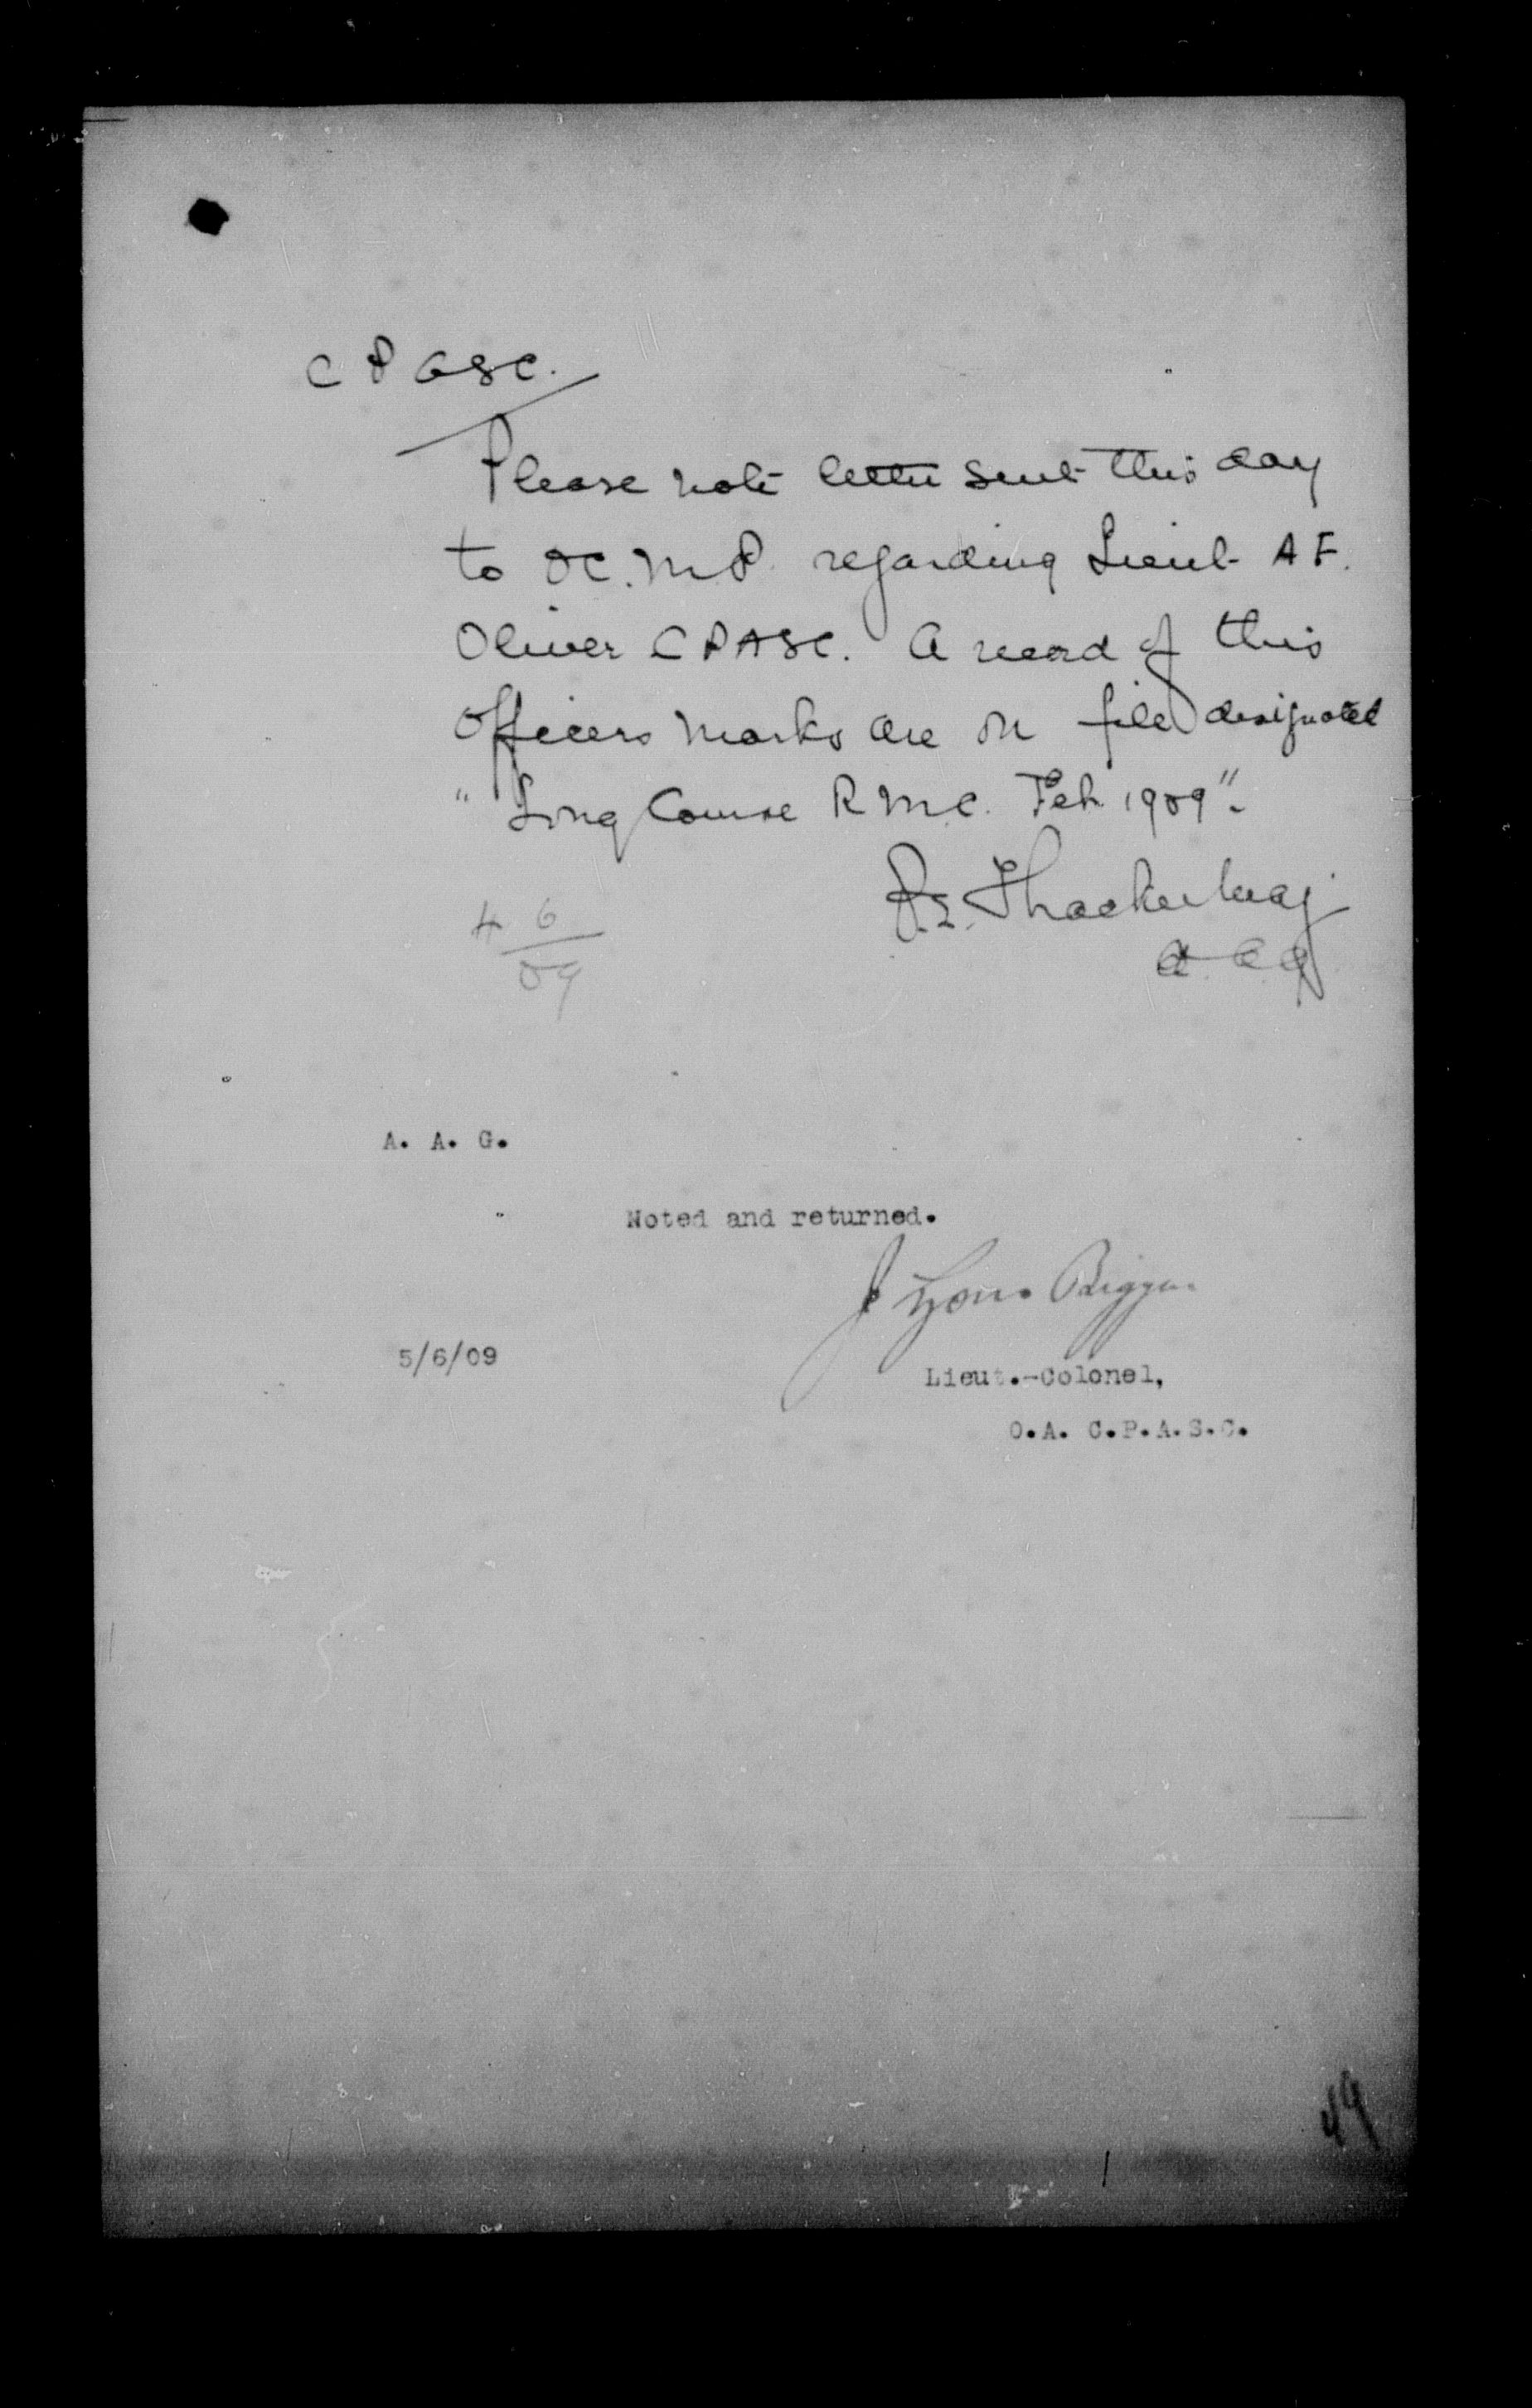 C P ASC.
Please note letter sent this day
to OC. M.P. regarding Lieut A F.
Oliver CPASC. A record of this
Officers marks are on file designated
"Long Course R M C. Feb 1909".
Thacker Maj
4 6
09
A. A. G.
Noted and returned.
J Lyons Biggar
5/6/09
Lieut.-Colonel,
O.A. C.P.A.S.C.
49